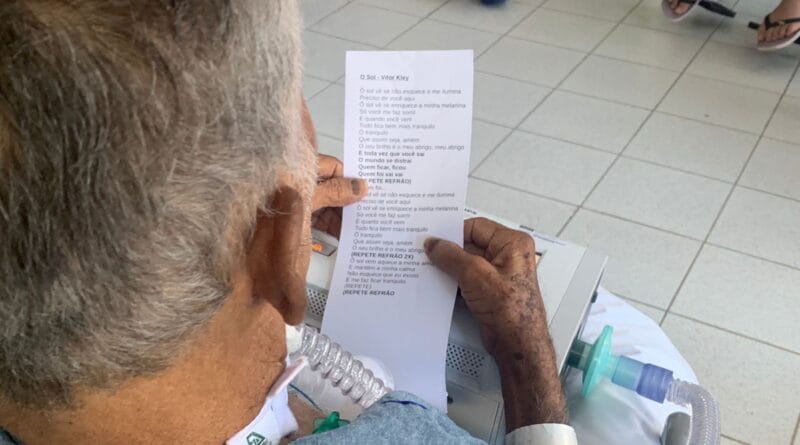 O Sol - Vitor Kley
Ô sol vê se não esquece e me ilumina
Preciso de você aqui
Ô sol vê se enriquece a minha melanina
Só você me faz sorrir
E quando você vem
Tudo fica bem mais tranquilo
Ô tranquilo
Que assim seja, amém
O seu brilho é o meu abrigo, meu abrigo
E toda vez que você sai
O mundo se distrai
Quem ficar, ficou
Quem foi vai vai
REPETE REFRÃO)
sol vê se não esquece e vai ilumina
Preciso de você aqui
Ô sol vê se enriquece a minha melanina
Só você me faz sorrir
E quanto você vem
Tudo fica bem mais tranquilo
Ô tranquilo
Que assim seja, amém
O seu brilho é o meu abrigo
(REPETE REFRÃO 2X)
Ô sol vem aquece a minha
E mantém a minha calma
Não esquece que eu existo
E me faz ficar tranquilo
(REPETE)
(REPETE REFRÃO